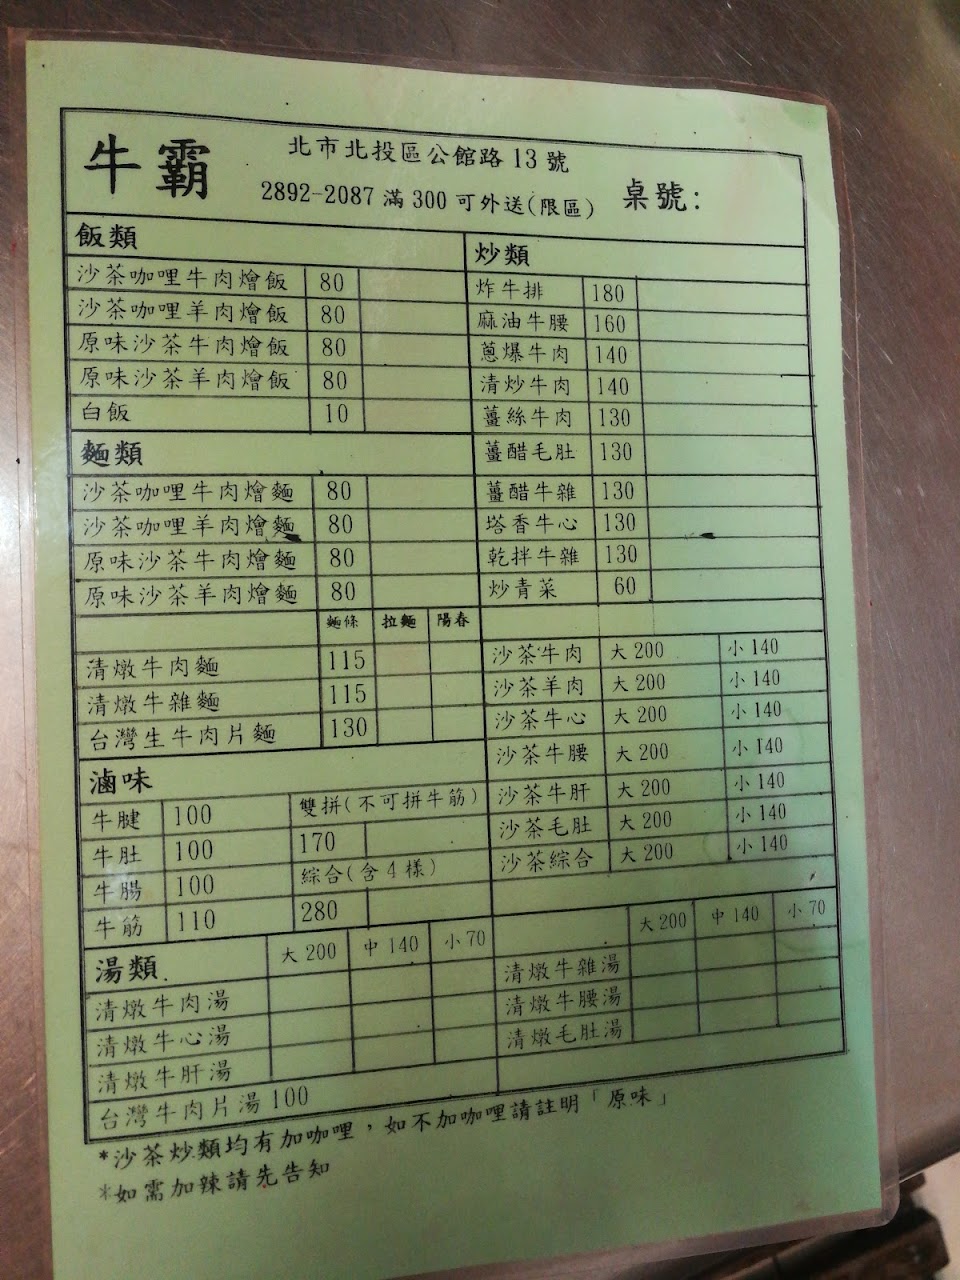 牛霸
北市北投區公館路 13 號
2892-2087 滿 300 可外送(限區)
桌號:
飯類
沙茶咖哩牛肉燴飯 80
沙茶咖哩羊肉燴飯 80
原味沙茶牛肉燴飯 80
原味沙茶羊肉燴飯 80
白飯 10
麵類
沙茶咖哩牛肉燴麵 80
沙茶咖哩羊肉燴麵 80
原味沙茶牛肉燴麵 80
原味沙茶羊肉燴麵 80
麵條 拉麵 陽春
清燉牛肉麵 115
清燉牛雜麵 115
台灣生牛肉片麵 130
滷味
牛腱 100 雙拼(不可拼牛筋)
牛肚 100 170
牛腸 100 綜合(含 4 樣)
牛筋 110 280
炒類
炸牛排 180
麻油牛腰 160
蔥爆牛肉 140
清炒牛肉 140
薑絲牛肉 130
薑醋毛肚 130
薑醋牛雜 130
塔香牛心 130
乾拌牛雜 130
炒青菜 60
沙茶牛肉 大 200 小 140
沙茶羊肉 大 200 小 140
沙茶牛心 大 200 小 140
沙茶牛腰 大 200 小 140
沙茶牛肝 大 200 小 140
沙茶毛肚 大 200 小 140
沙茶綜合 大 200 小 140
湯類. 大 200 中 140 小 70
清燉牛肉湯
清燉牛心湯
清燉牛肝湯
台灣牛肉片湯 100
大 200 中 140 小 70
清燉牛雜湯
清燉牛腰湯
清燉毛肚湯
*沙茶炒類均有加咖哩，如不加咖哩請註明「原味」
*如需加辣請先告知